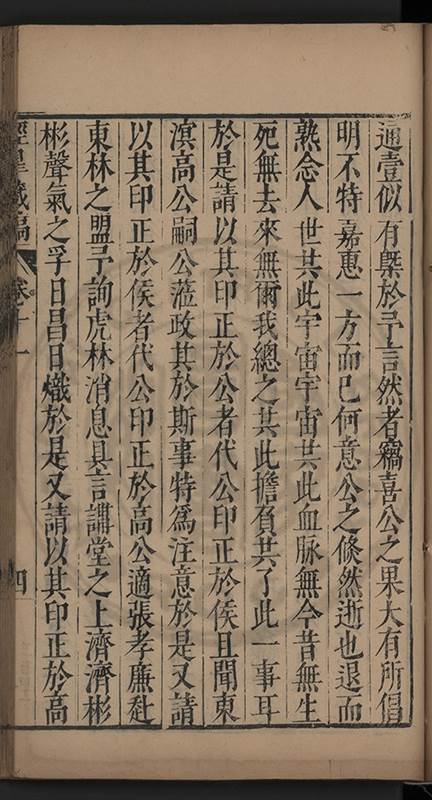 通壹似有槩於予言然者竊喜公之果大有所倡
明不特嘉惠一方而已何意公之倏然逝也退而
熟念人世共此宇宙宇宙共此血脉無今昔無生
死無去來無爾我總之共此擔負共了此一事耳
於是請以其印正於公者代公印正於侯且聞東
溟高公嗣公蒞政其於斯事特爲注意於是又請
以其印正於侯者代公印正於高公適張孝廉赴
東林之盟予詢虎林消息具言講堂之上濟濟彬
彬聲氣之孚日昌日熾於是又請以其印正於高
涇臯藏稿 卷十一 四